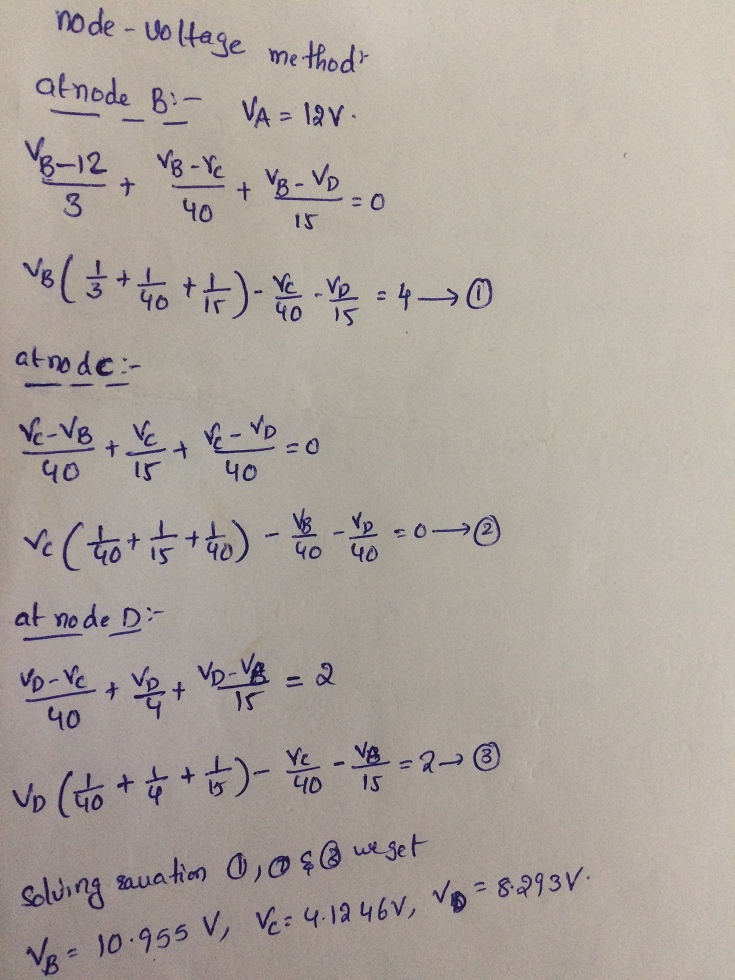 node-voltage method:-
at node B:- VA = 12V.
(VB-12)/3 + (VB-VC)/40 + (VB-VD)/15 = 0
VB(1/3 + 1/40 + 1/15) - VC/40 - VD/15 = 4 → ①
at node C:-
(VC-VB)/40 + VC/15 + (VC-VD)/40 = 0
VC(1/40 + 1/15 + 1/40) - VB/40 - VD/40 = 0 → ②
at node D:-
(VD-VC)/40 + VD/4 + (VD-VB)/15 = 2
VD(1/40 + 1/4 + 1/15) - VC/40 - VB/15 = 2 → ③
Solving equation ①, ② & ③ we get
VB = 10.955 V, VC = 4.1246V, VD = 8.293V.